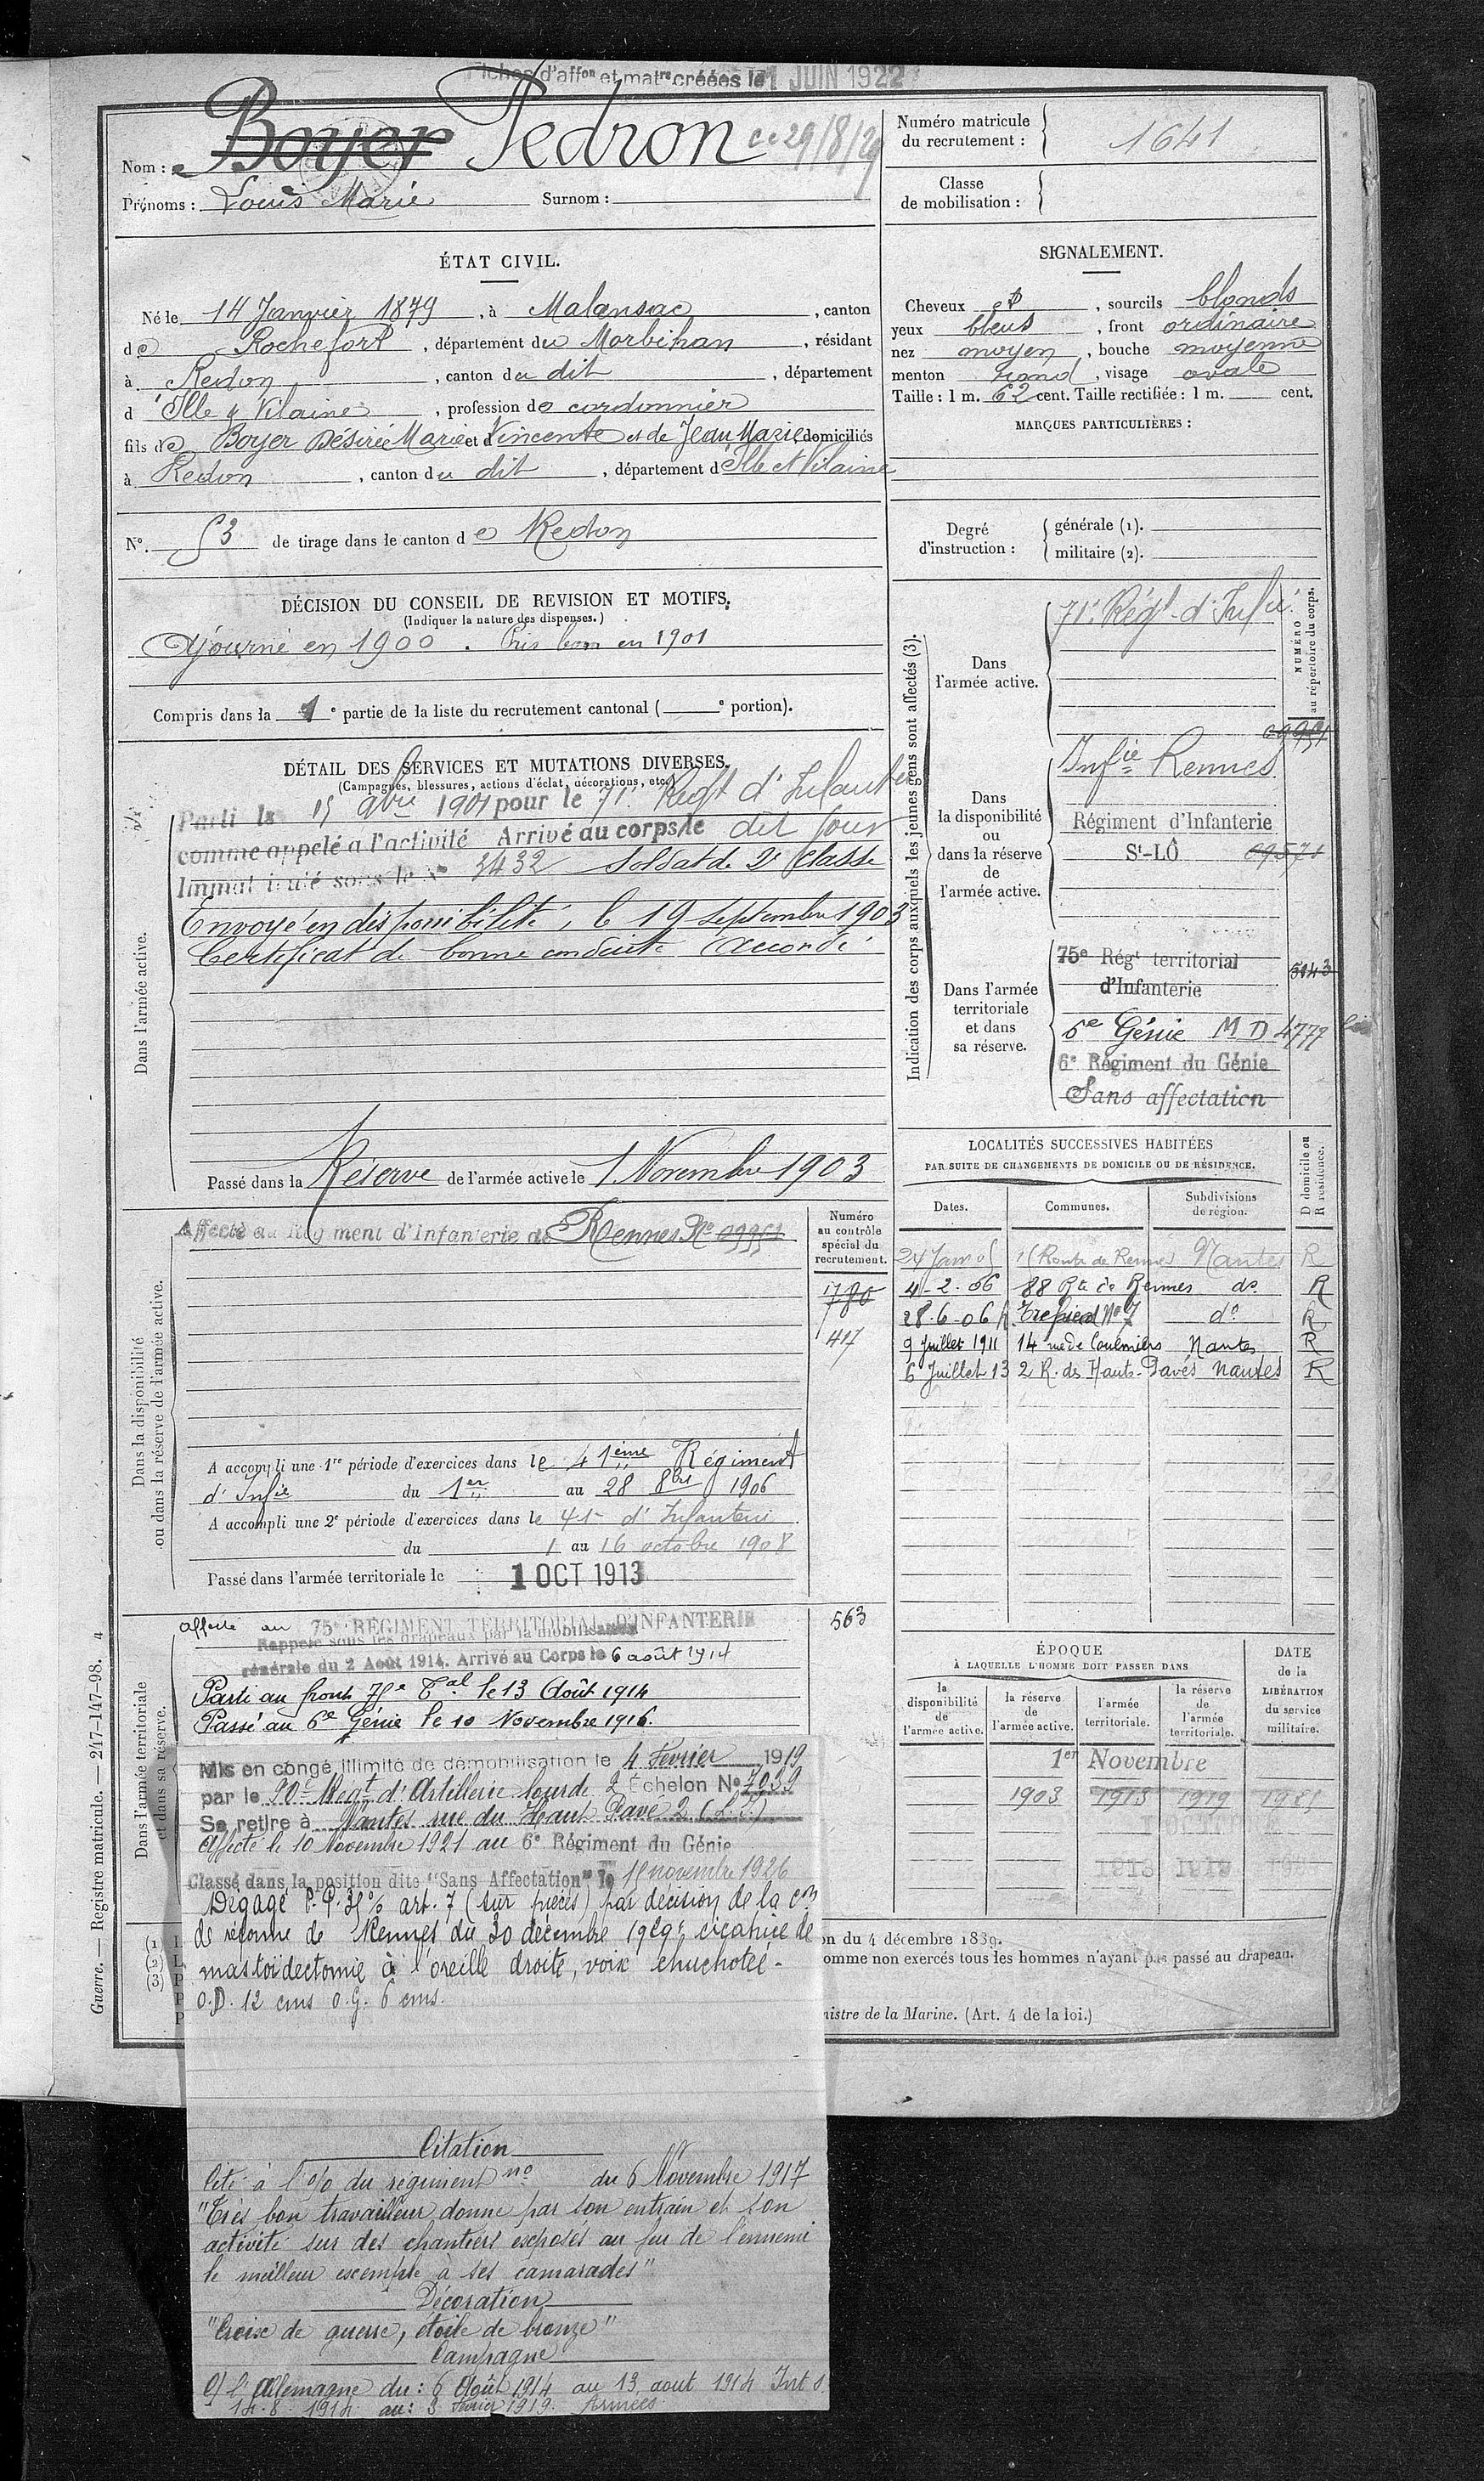 Fiches d'affon et matre créées le 1 JUIN 1922
Nom : Boyer Pedron 29/8/29
Prénoms : Louis Marie Surnom :
Numéro matricule du recrutement : 1641
Classe de mobilisation :
ÉTAT CIVIL.
Né le 14 Janvier 1879, à Malansac, canton
de Rochefort, département du Morbihan, résidant
à Redon, canton du dit, département
d'Ille & Vilaine, profession de cordonnier
fils de Boyer Désirée Marie et d Vincente et de Jean Marie, domiciliés
à Redon, canton du dit, département d'Ille et Vilaine
N°. 53 de tirage dans le canton de Redon
SIGNALEMENT.
Cheveux et, sourcils blonds
yeux bleus, front ordinaire
nez moyen, bouche moyenne
menton rond, visage ovale
Taille : 1 m. 62 cent. Taille rectifiée : 1 m. cent.
MARQUES PARTICULIÈRES :
Degré d'instruction : générale (1).
militaire (2).
DÉCISION DU CONSEIL DE REVISION ET MOTIFS.
(Indiquer la nature des dispenses.)
Ajourné en 1900. Pris bon en 1901
Compris dans la 1e partie de la liste du recrutement cantonal ( e portion).
DÉTAIL DES SERVICES ET MUTATIONS DIVERSES.
(Campagnes, blessures, actions d'éclat, décorations, etc.)
Dans l'armée active.
Parti le 15 9bre 1901 pour le 71e Régt d'Infanterie
comme appelé à l'activité Arrivé au corps le dit jour
Immatriculé sous le N° 3432 soldat de 2e classe
Envoyé en disponibilité, le 19 septembre 1903
Certificat de bonne conduite accordé
Passé dans la Réserve de l'armée active le 1 Novembre 1903
Dans la disponibilité ou dans la réserve de l'armée active.
Affecté au Régiment d'Infanterie de Rennes No 09951
Numéro au contrôle spécial du recrutement.
780
417
A accompli une 1re période d'exercices dans le 41ème Régiment
d'Infie du 1er au 28 8bre 1906
A accompli une 2e période d'exercices dans le 41e d'Infanterie
du 1 au 16 octobre 1908
Passé dans l'armée territoriale le 1 OCT 1913
Dans l'armée territoriale et dans sa réserve.
affecté au 75e RÉGIMENT TERRITORIAL D'INFANTERIE
563
Rappelé sous les drapeaux par la mobilisation
générale du 2 Août 1914. Arrivé au Corps le 6 août 1914
Parti au front 75e Tal le 13 Août 1914
Passé au 6e Génie le 10 Novembre 1916.
Mis en congé illimité de démobilisation le 4 Février 1919
par le 90e Regt d'Artillerie lourde 2 Echelon No 7039
Se retire à Nantes rue du Haut Pavé 2 (L.I.)
Affecté le 10 Novembre 1921 au 6e Régiment du Génie
Classé dans la position dite "Sans Affectation" le 15 novembre 1926
Dégagé art. 7 (sur pièces) par décision de la con
de réforme de Rennes du 30 décembre 1929 cicatrice de
mastoïdectomie à l'oreille droite, voix chuchotée -
O.D. 12 cms O.G. 6 cms.
Citation
Cité à l'o/o du régiment no du 6 Novembre 1917
"Très bon travailleur donne par son entrain et son
activité sur des chantiers exposés au feu de l'ennemi
le meilleur exemple à ses camarades"
Décoration
"Croix de guerre, étoile de bronze"
Campagne
C/ l'Allemagne du : 6 Août 1914 au 13 aout 1914 Int
14.8.1914 au : 3 Février 1919. Armées
Indication des corps auxquels les jeunes gens sont affectés (3).
NUMÉRO au répertoire du corps.
Dans l'armée active.
71e Régt d'Infie
Dans la disponibilité ou dans la réserve de l'armée active.
Infie Rennes 09951
Régiment d'Infanterie
St-LÔ 09571
Dans l'armée territoriale et dans sa réserve.
75e Régt territorial
d'Infanterie 5143
6e Génie M D 4777 bis
6e Régiment du Génie
Sans affectation
LOCALITÉS SUCCESSIVES HABITÉES
PAR SUITE DE CHANGEMENTS DE DOMICILE OU DE RÉSIDENCE.
Dates. Communes. Subdivisions de région. D domicile ou R résidence.
Route de Rennes Nantes R
4-2-06 88 Rte de Rennes do R
28-6-06 Trepied No 7 do R
9 Juillet 1911 14 rue de Coulmiers Nantes R
6 Juillet 13 2 R. des Hauts-Pavés Nantes R
ÉPOQUE
À LAQUELLE L'HOMME DOIT PASSER DANS
la disponibilité de l'armée active. la réserve de l'armée active. l'armée territoriale. la réserve de l'armée territoriale.
DATE de la LIBÉRATION du service militaire.
1er Novembre
1903 1913 1919
1913 1919
on du 4 décembre 1889.
omme non exercés tous les hommes n'ayant pas passé au drapeau.
nistre de la Marine. (Art. 4 de la loi.)
Guerre. — Registre matricule. — 247-147-98. 4